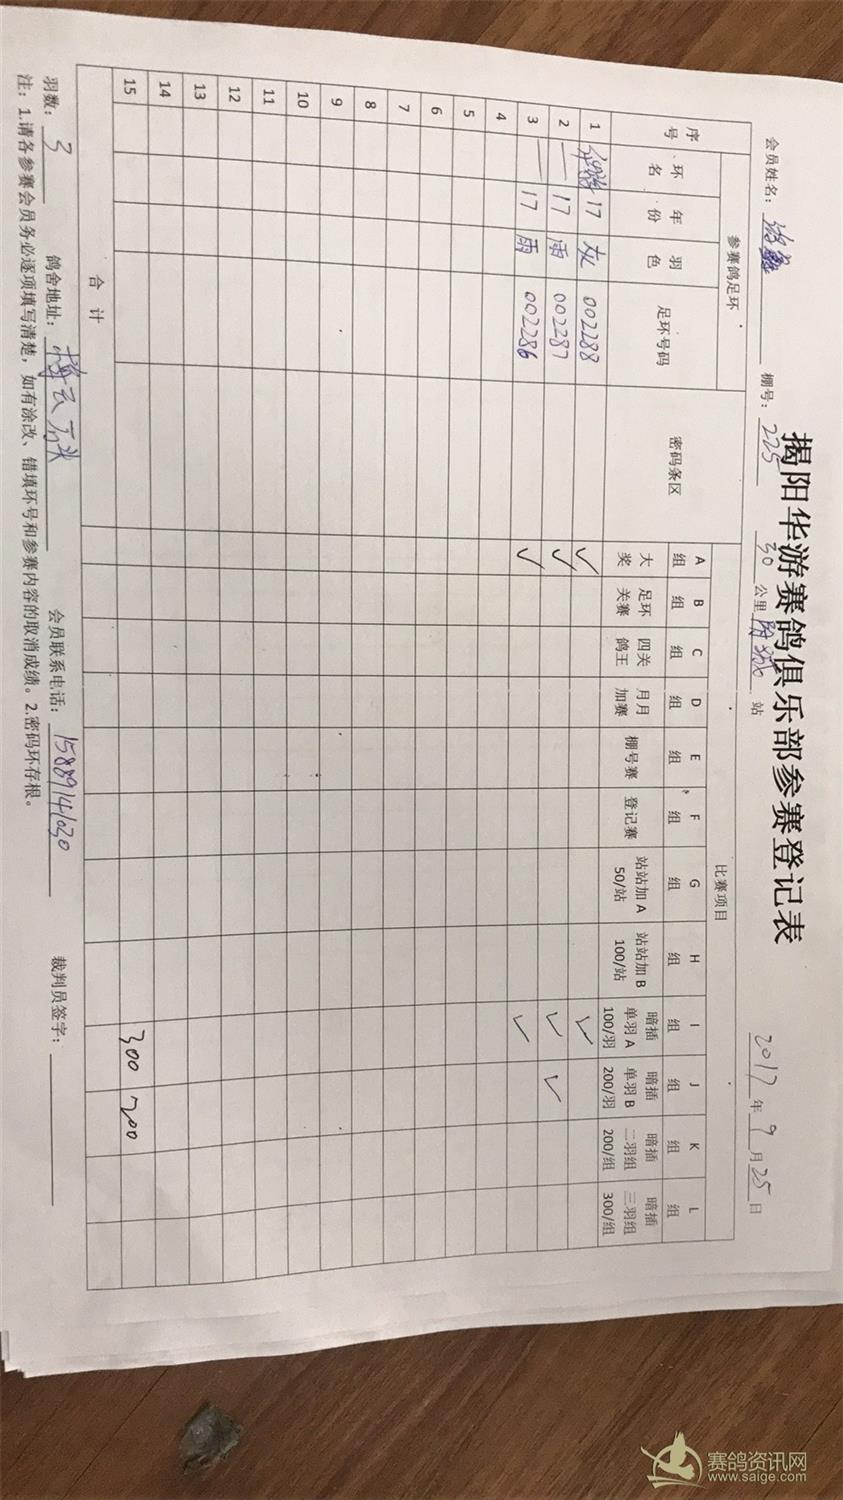 揭阳华游赛鸽俱乐部参赛登记表
会员姓名： 棚号：225 30公里 站 2017年9月25日
序号 参赛鸽足环 密码条区 比赛项目
环名 年份 羽色 足环号码 A组 B组 C组 D组 E组 F组 G组 H组 I组 J组 K组 L组
大奖 足环关赛 四关鸽王 月月加赛 棚号赛 登记赛 站站加A 50/站 站站加B 100/站 暗插单羽A 100/羽 暗插单羽B 200/羽 暗插二羽组 200/组 暗插三羽组 300/组
1 17 灰 002288 ✓ ✓
2 一 17 雨 002287 ✓ ✓ ✓
3 一 17 雨 002286 ✓ ✓
4
5
6
7
8
9
10
11
12
13
14
15 300 200
合计
羽数：3 鸽舍地址： 会员联系电话：15889141030 裁判员签字：
注：1.请各参赛会员务必逐项填写清楚，如有涂改、错填环号和参赛内容的取消成绩。2.密码环存根。
赛鸽资讯网
www.saige.com